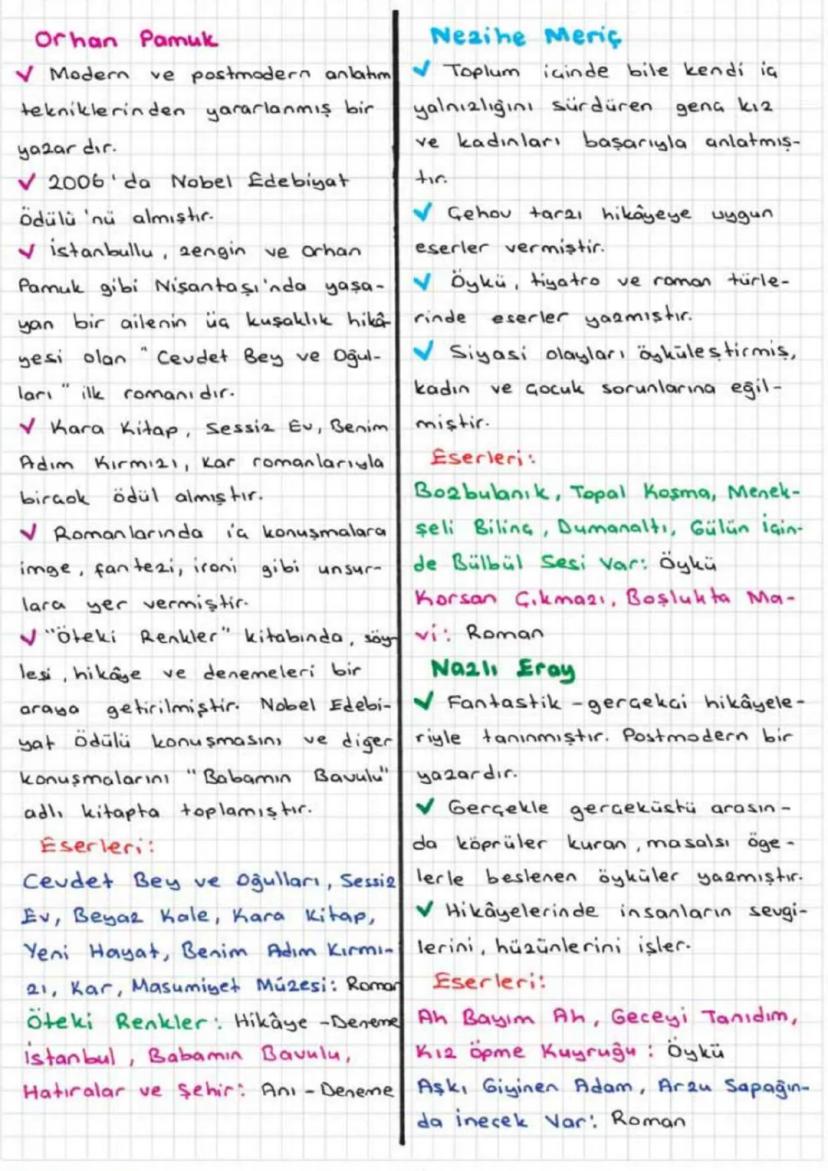 Orhan Pamuk
✓ Modern ve postmodern anlatım
tekniklerinden yararlanmış bir
yazardır.
✓ 2006'da Nobel Edebiyat
Ödülü'nü almıştır.
✓ İstanbullu, zengin ve Orhan
Pamuk gibi Nişantaşı'nda yaşa-
yan bir ailenin üç kuşaklık hikâ-
yesi olan "Cevdet Bey ve Oğul-
ları" ilk romanıdır.
✓ Kara Kitap, Sessiz Ev, Benim
Adım Kırmızı, Kar romanlarıyla
birçok ödül almıştır.
✓ Romanlarında iç konuşmalara
imge, fantezi, ironi gibi unsur-
lara yer vermiştir.
✓ "Öteki Renkler" kitabında, söy
leşi, hikâye ve denemeleri bir
araya getirilmiştir. Nobel Edebi-
yat Ödülü konuşmasını ve diğer
konuşmalarını "Babamın Bavulu"
adlı kitapta toplamıştır.
Eserleri:
Cevdet Bey ve Oğulları, Sessiz
Ev, Beyaz Kale, Kara Kitap,
Yeni Hayat, Benim Adım Kırmı-
zı, Kar, Masumiyet Müzesi: Roman
Öteki Renkler: Hikâye - Deneme
İstanbul, Babamın Bavulu,
Hatıralar ve Şehir: Anı - Deneme
Nezihe Meriç
✓ Toplum içinde bile kendi iç
yalnızlığını sürdüren genç kız
ve kadınları başarıyla anlatmış-
tır.
✓ Çehov tarzı hikâyeye uygun
eserler vermiştir.
✓ Öykü, tiyatro ve roman türle-
rinde eserler yazmıştır.
✓ Siyasi olayları öyküleştirmiş,
kadın ve çocuk sorunlarına eğil-
miştir.
Eserleri:
Bozbulanık, Topal Koşma, Menek-
şeli Bilinç, Dumanaltı, Gülün İçin-
de Bülbül Sesi Var: Öykü
Korsan Çıkmazı, Boşlukta Ma-
vi: Roman
Nazlı Eray
✓ Fantastik - gerçekçi hikâyele-
riyle tanınmıştır. Postmodern bir
yazardır.
✓ Gerçekle gerçeküstü arasın-
da köprüler kuran, masalsı öge-
lerle beslenen öyküler yazmıştır.
✓ Hikâyelerinde insanların sevgi-
lerini, hüzünlerini işler.
Eserleri:
Ah Bayım Ah, Geceyi Tanıdım,
Kız Öpme Kuyruğu: Öykü
Aşkı Giyinen Adam, Arzu Sapağın-
da İnecek Var: Roman